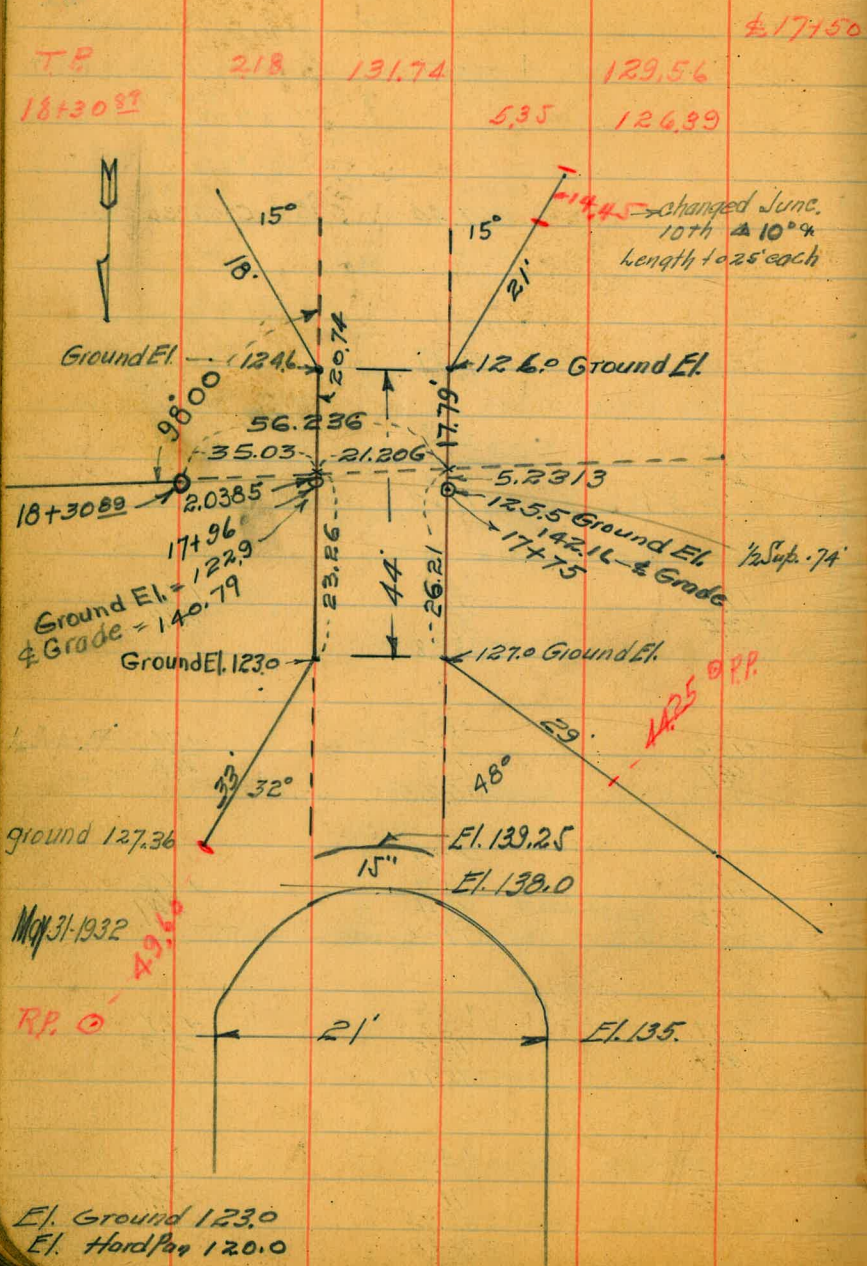 ⅊ 17+50
T.P. 2.18 131.74 129.56
18+30 89 5.35 126.39
15°
15°
14.45
changed Junc.
10th 10° &
Length to 25' each
18'
21'
Ground El. 124.6
20.74
126.0 Ground El.
98°00'
56.236
17.79'
35.03 21.206
5.2313
18+30 89
2.0385
125.5 Ground El.
142.16 ⅊ Grade
17+75
½ Sup. .74'
17+96
Ground El. = 122.9
⅊ Grade = 140.79
23.26
44'
26.21
Ground El. 123.0
127.0 Ground El.
R.P.
44.25
29'
33'
32°
48°
ground 127.36
El. 139.25
15"
El. 138.0
May 31-1932
49.60
R.P.
21'
El. 135.
El. Ground 123.0
El. Hard Pan 120.0